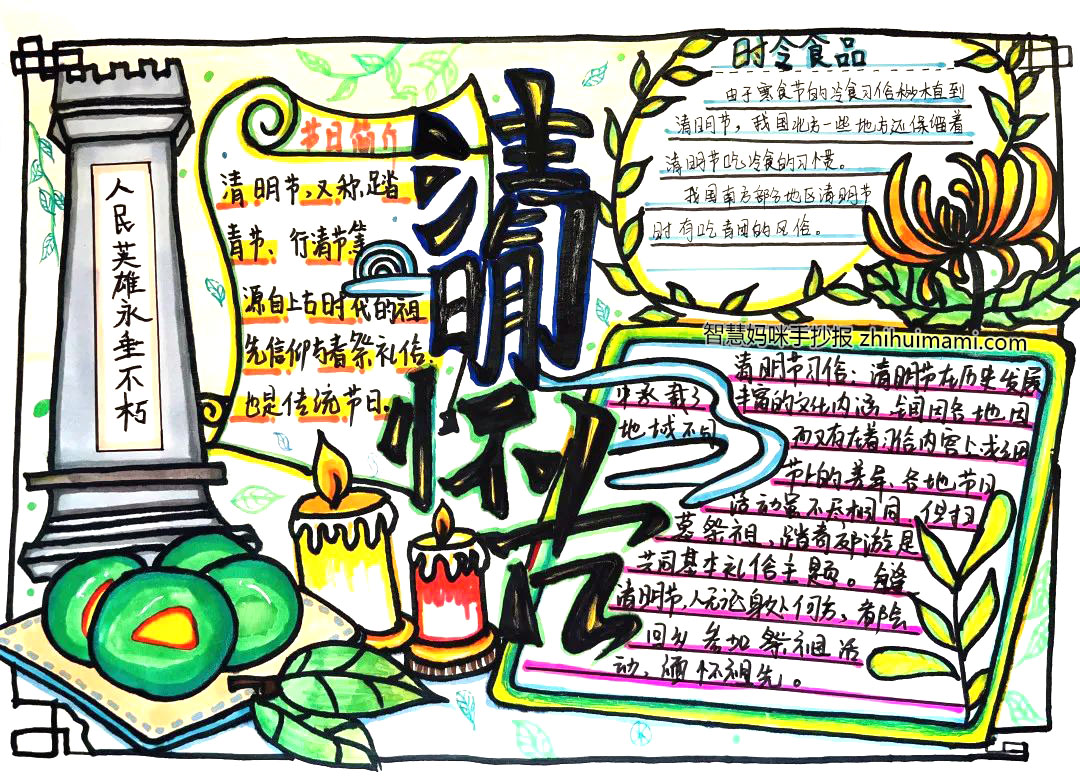 清明怀古
人民英雄永垂不朽
节日简介
清明节,又称踏
青节、行清节等
源自上古时代的祖
先信仰与春祭礼俗.
也是传统节日.
时令食品
由于寒食节的冷食习俗移植到
清明节,我国北方一些地方还保留着
清明节吃冷食的习惯。
我国南方部分地区清明节
时有吃青团的风俗。
智慧妈咪手抄报 zhihuimami.com
清明节习俗:清明节在历史发展
中承载了丰富的文化内涵,全国因各地因
地域不同 而又存在着习俗内容上或细
节上的差异,各地节日
活动虽不尽相同,但扫
墓祭祖、踏青郊游是
共同基本礼俗主题。每逢
清明节,人无论身处何方,都会
回乡参加祭祖活
动,缅怀祖先。